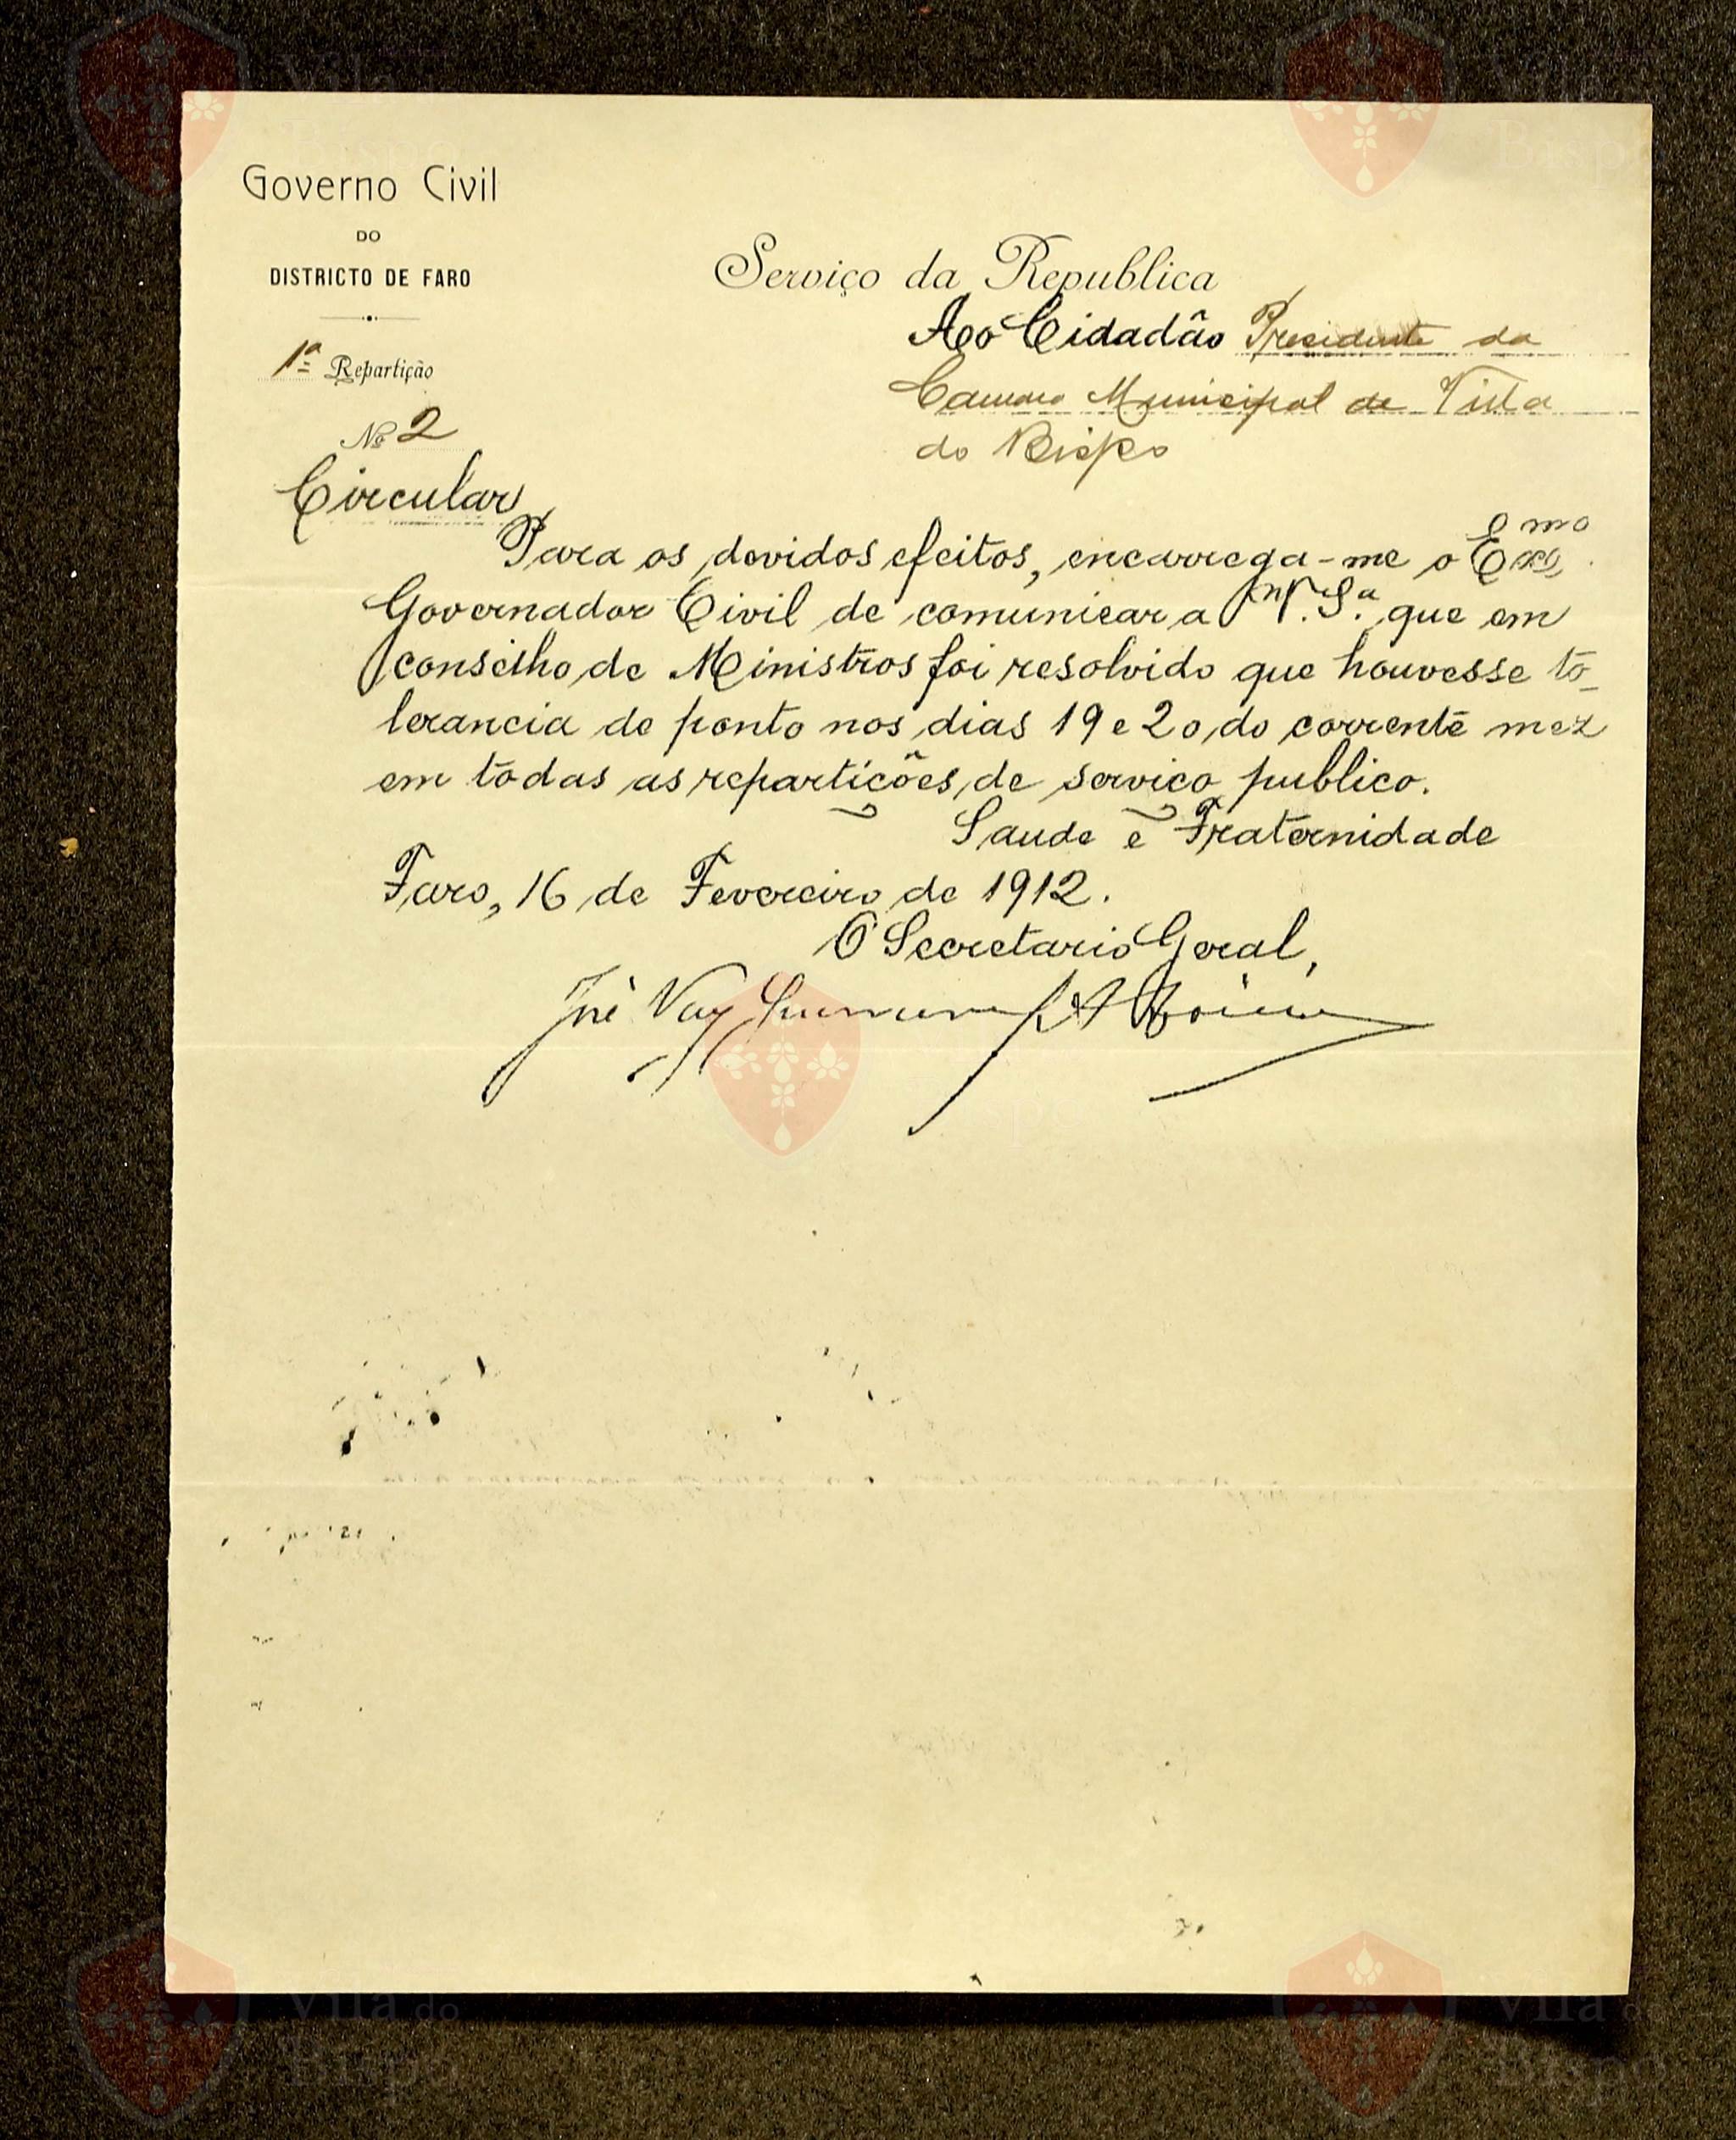 Governo Civil
DO
DISTRICTO DE FARO
1ª Repartição
Nº 2
Circular
Serviço da Republica
Ao Cidadão Presidente da
Camara Municipal de Villa
do Bispo
Para os devidos efeitos, encarrega-me o Exmo
Governador Civil de comunicar a V. Sª que em
conselho de Ministros foi resolvido que houvesse to-
lerancia de ponto nos dias 19 e 20 do corrente mez
em todas as repartições de serviço publico.
Saude e Fraternidade
Faro, 16 de Fevereiro de 1912.
O Secretario Geral,
José Vaz
Vila do
Bispo